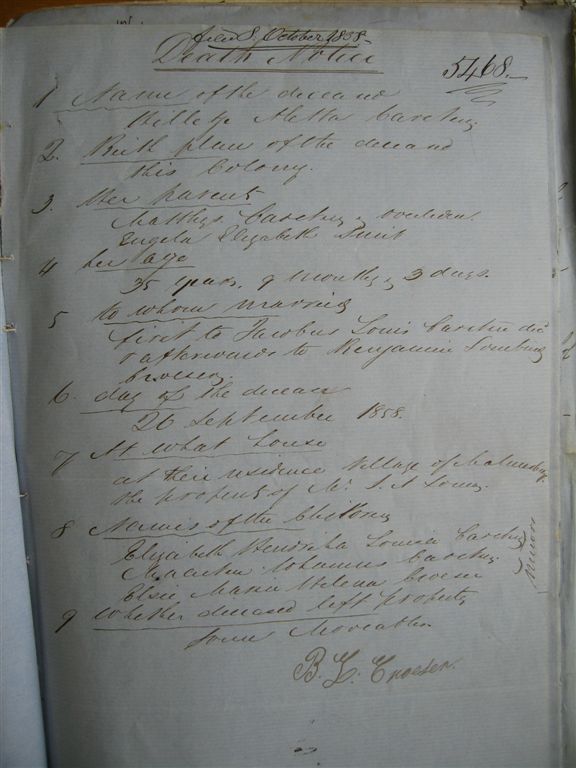 filed 8 October 1858
Death Notice
5468.
1 Name of the deceased
Aletta
2. Birth place of the deceased
this Colony.
3. Her Parents
Matthys &
Engela Elizabeth Smit
4 her age
35 years, 9 months, 3 days
5 to whom married
first to Jacobus Louis
& afterwards to Benjamin
Croeser.
6. day of the decease
26 September 1858.
7 At what House
at their residence Village of Malmesbury
the property of Mr.
8 Names of the Children
Elizabeth Hendrika Louisa
Johannes
Elsie Maria Helena Croeser
minors
9 Whether deceased left property
some Moveables
B. L. Croeser.